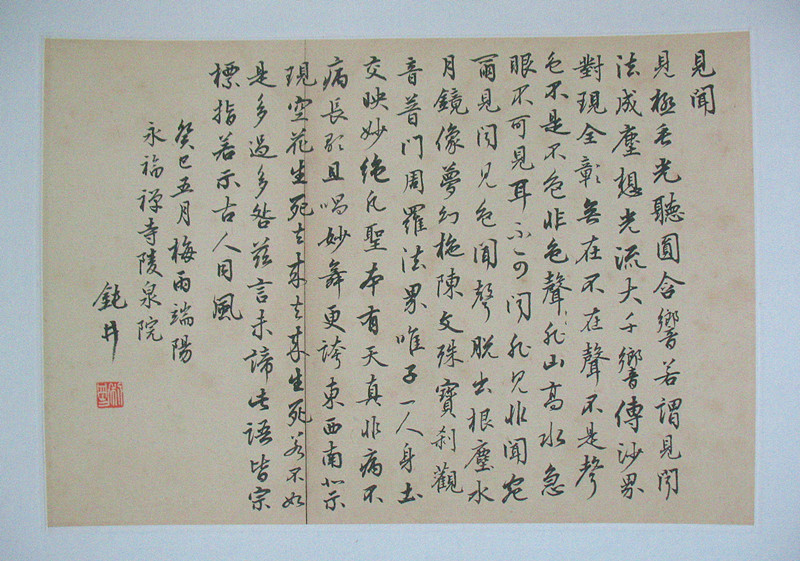 見聞
見極吞光聽圓含響若謂見聞
法成塵想光流大千響傳沙界
對現全彰無在不在聲不是聲
色不是不色非色聲非山高水急
眼不可見耳不可聞非見非聞宛
爾見聞見色聞聲脫出根塵水
月鏡像夢幻施陳文殊寶剎觀
音普門周羅法界唯予一人身土
交映妙絕凡聖本有天真非病不
病長歌且唱妙舞更誇東西南北示
現空花生死去來去來生死若不如
是多過多咎茲言未諦此語皆宗
標指若示古人同風
癸巳五月梅雨端陽
永福禪寺陵泉院
鈍井